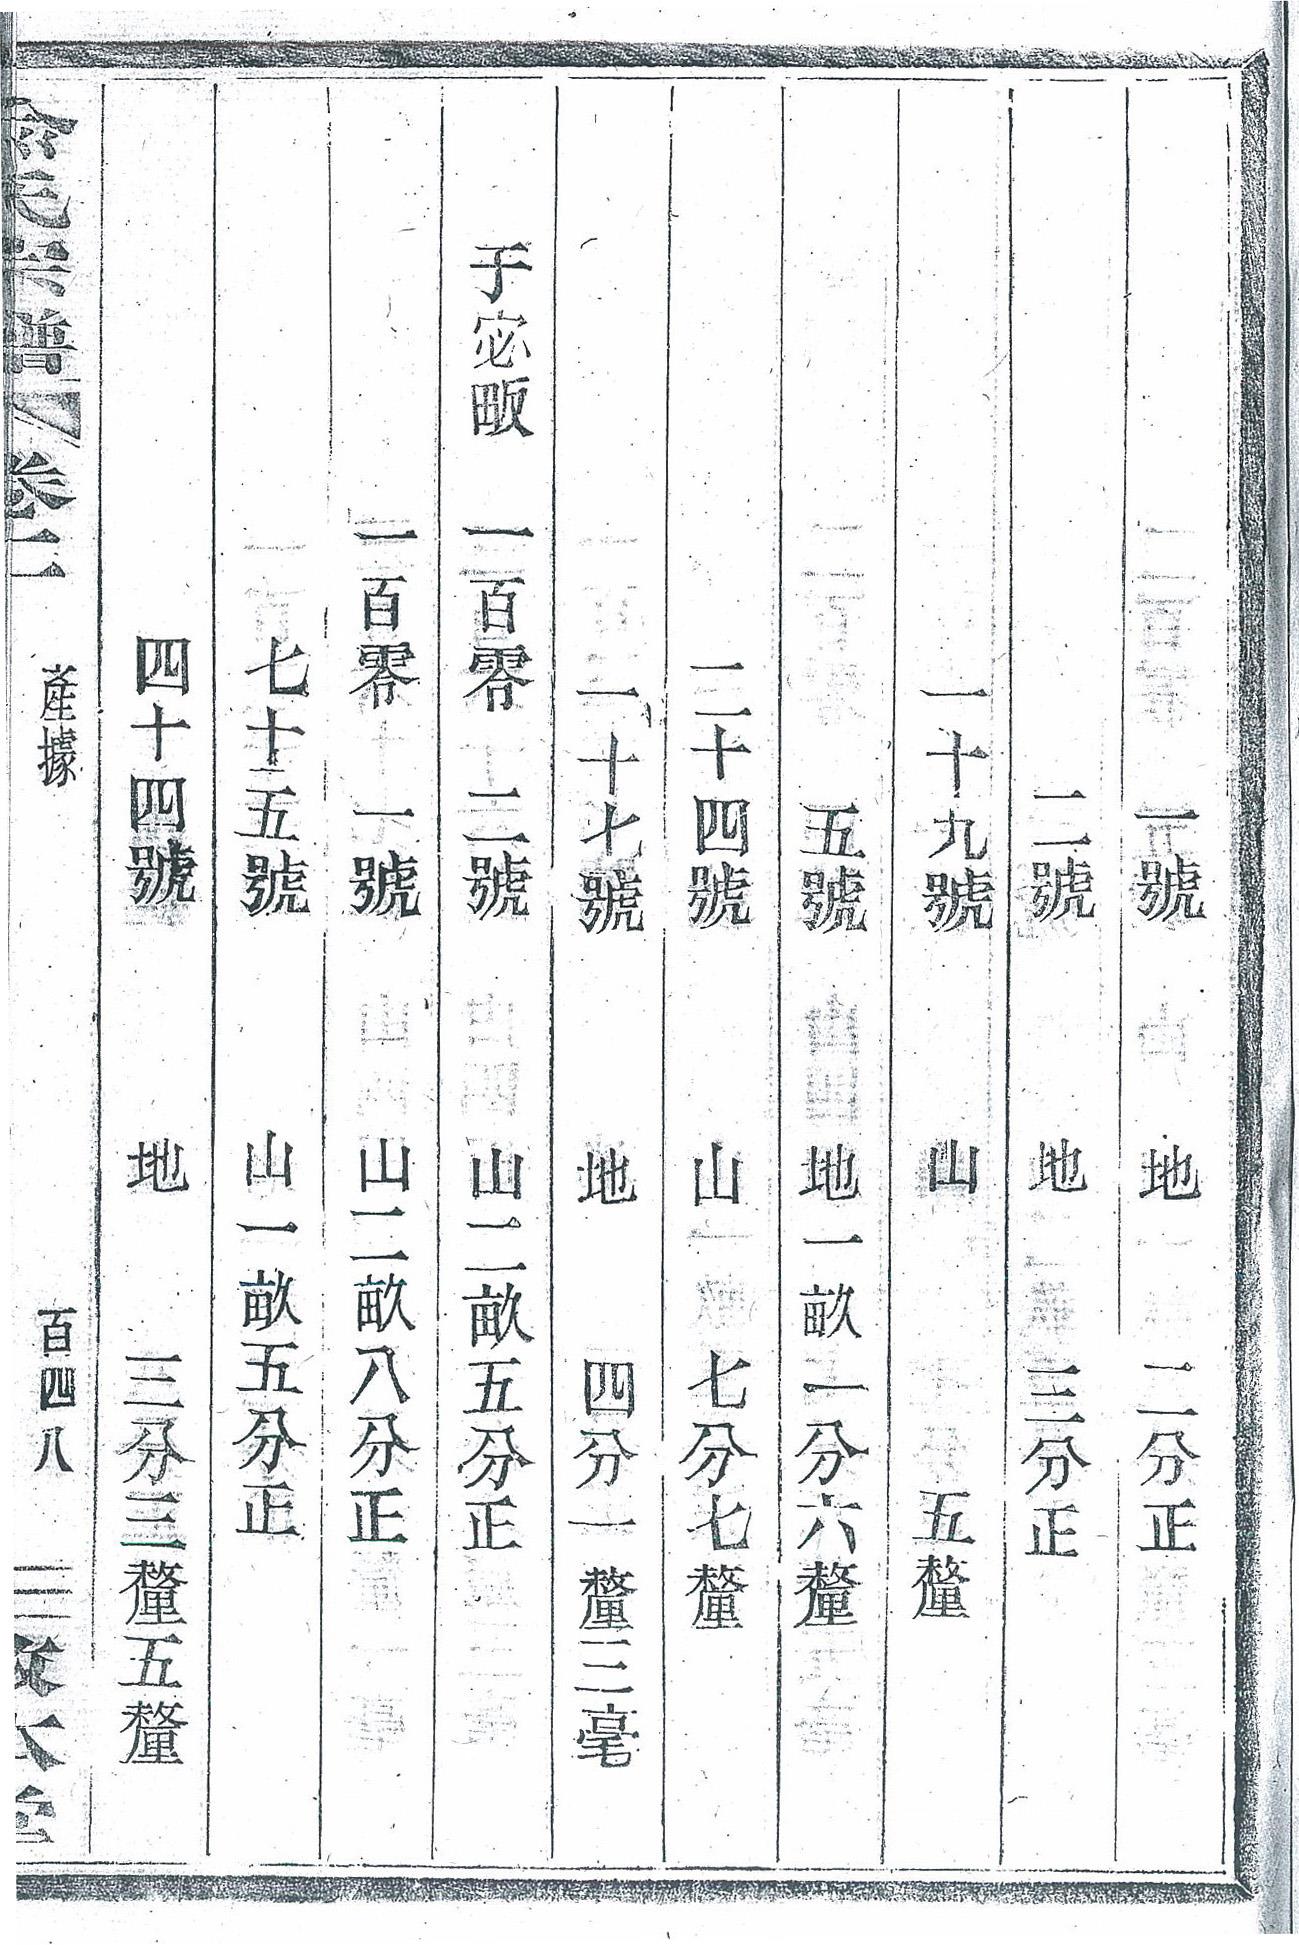 一號 地 二分正
二號 地 三分正
一十九號 山 五釐
五號 地一畝一分六釐
二十四號 山 七分七釐
一十七號 地 四分一釐三毫
于宓畈 一百零二號 山二畝五分正
一百零一號 山二畝八分正
七十五號 山一畝五分正
四十四號 地 三分三釐五釐
氏宗譜 卷二 產據 百四八 三 大堂